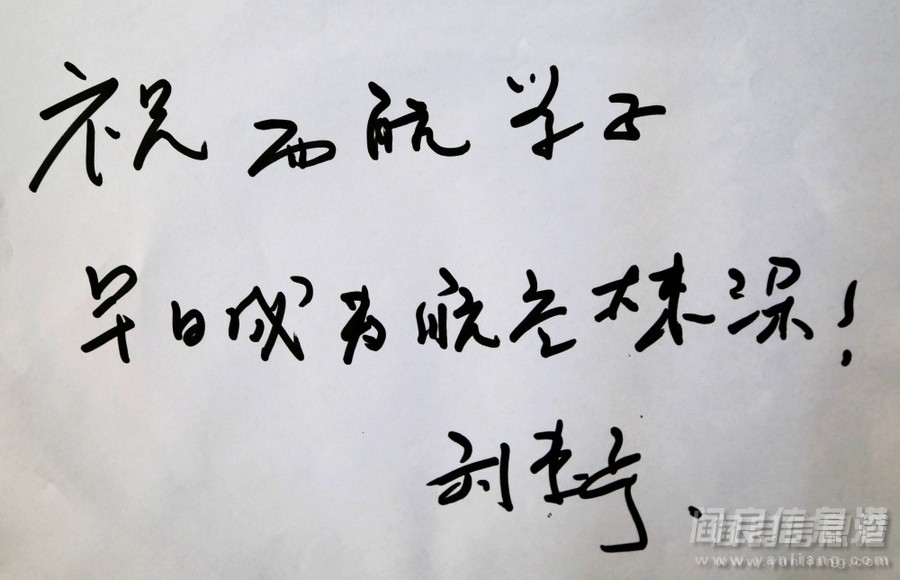 祝西航学子
早日成为航空栋梁!
阎良信息港
www.yanliang.com